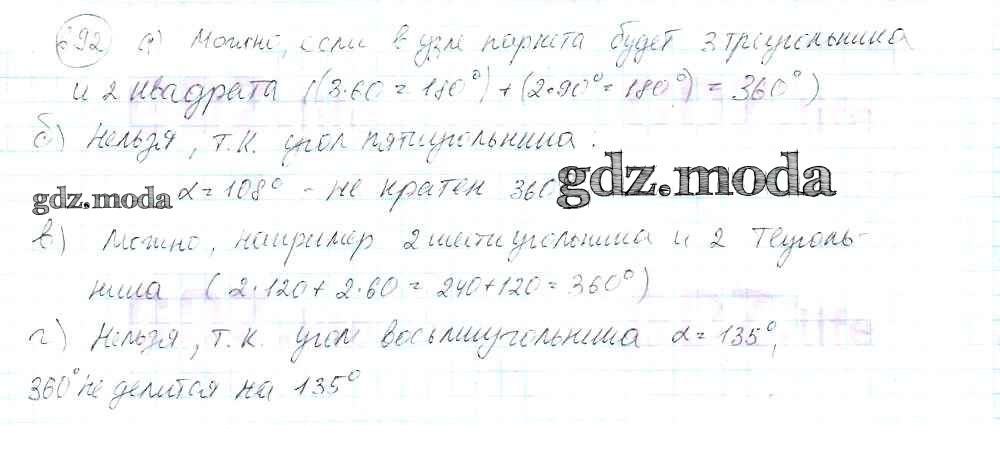 692 а) Можно, если в узле паркета будет 3 треугольника
и 2 квадрата ((3·60=180°)+(2·90°=180°)=360°)
б) Нельзя, т.к. угол пятиугольника:
gdz.moda α=108° - не кратен 360 gdz.moda
в) Можно, например 2 шестиугольника и 2 теуголь-
ника (2·120+2·60=240+120=360°)
г) Нельзя, т.к. угол восьмиугольника α=135°,
360° не делится на 135°